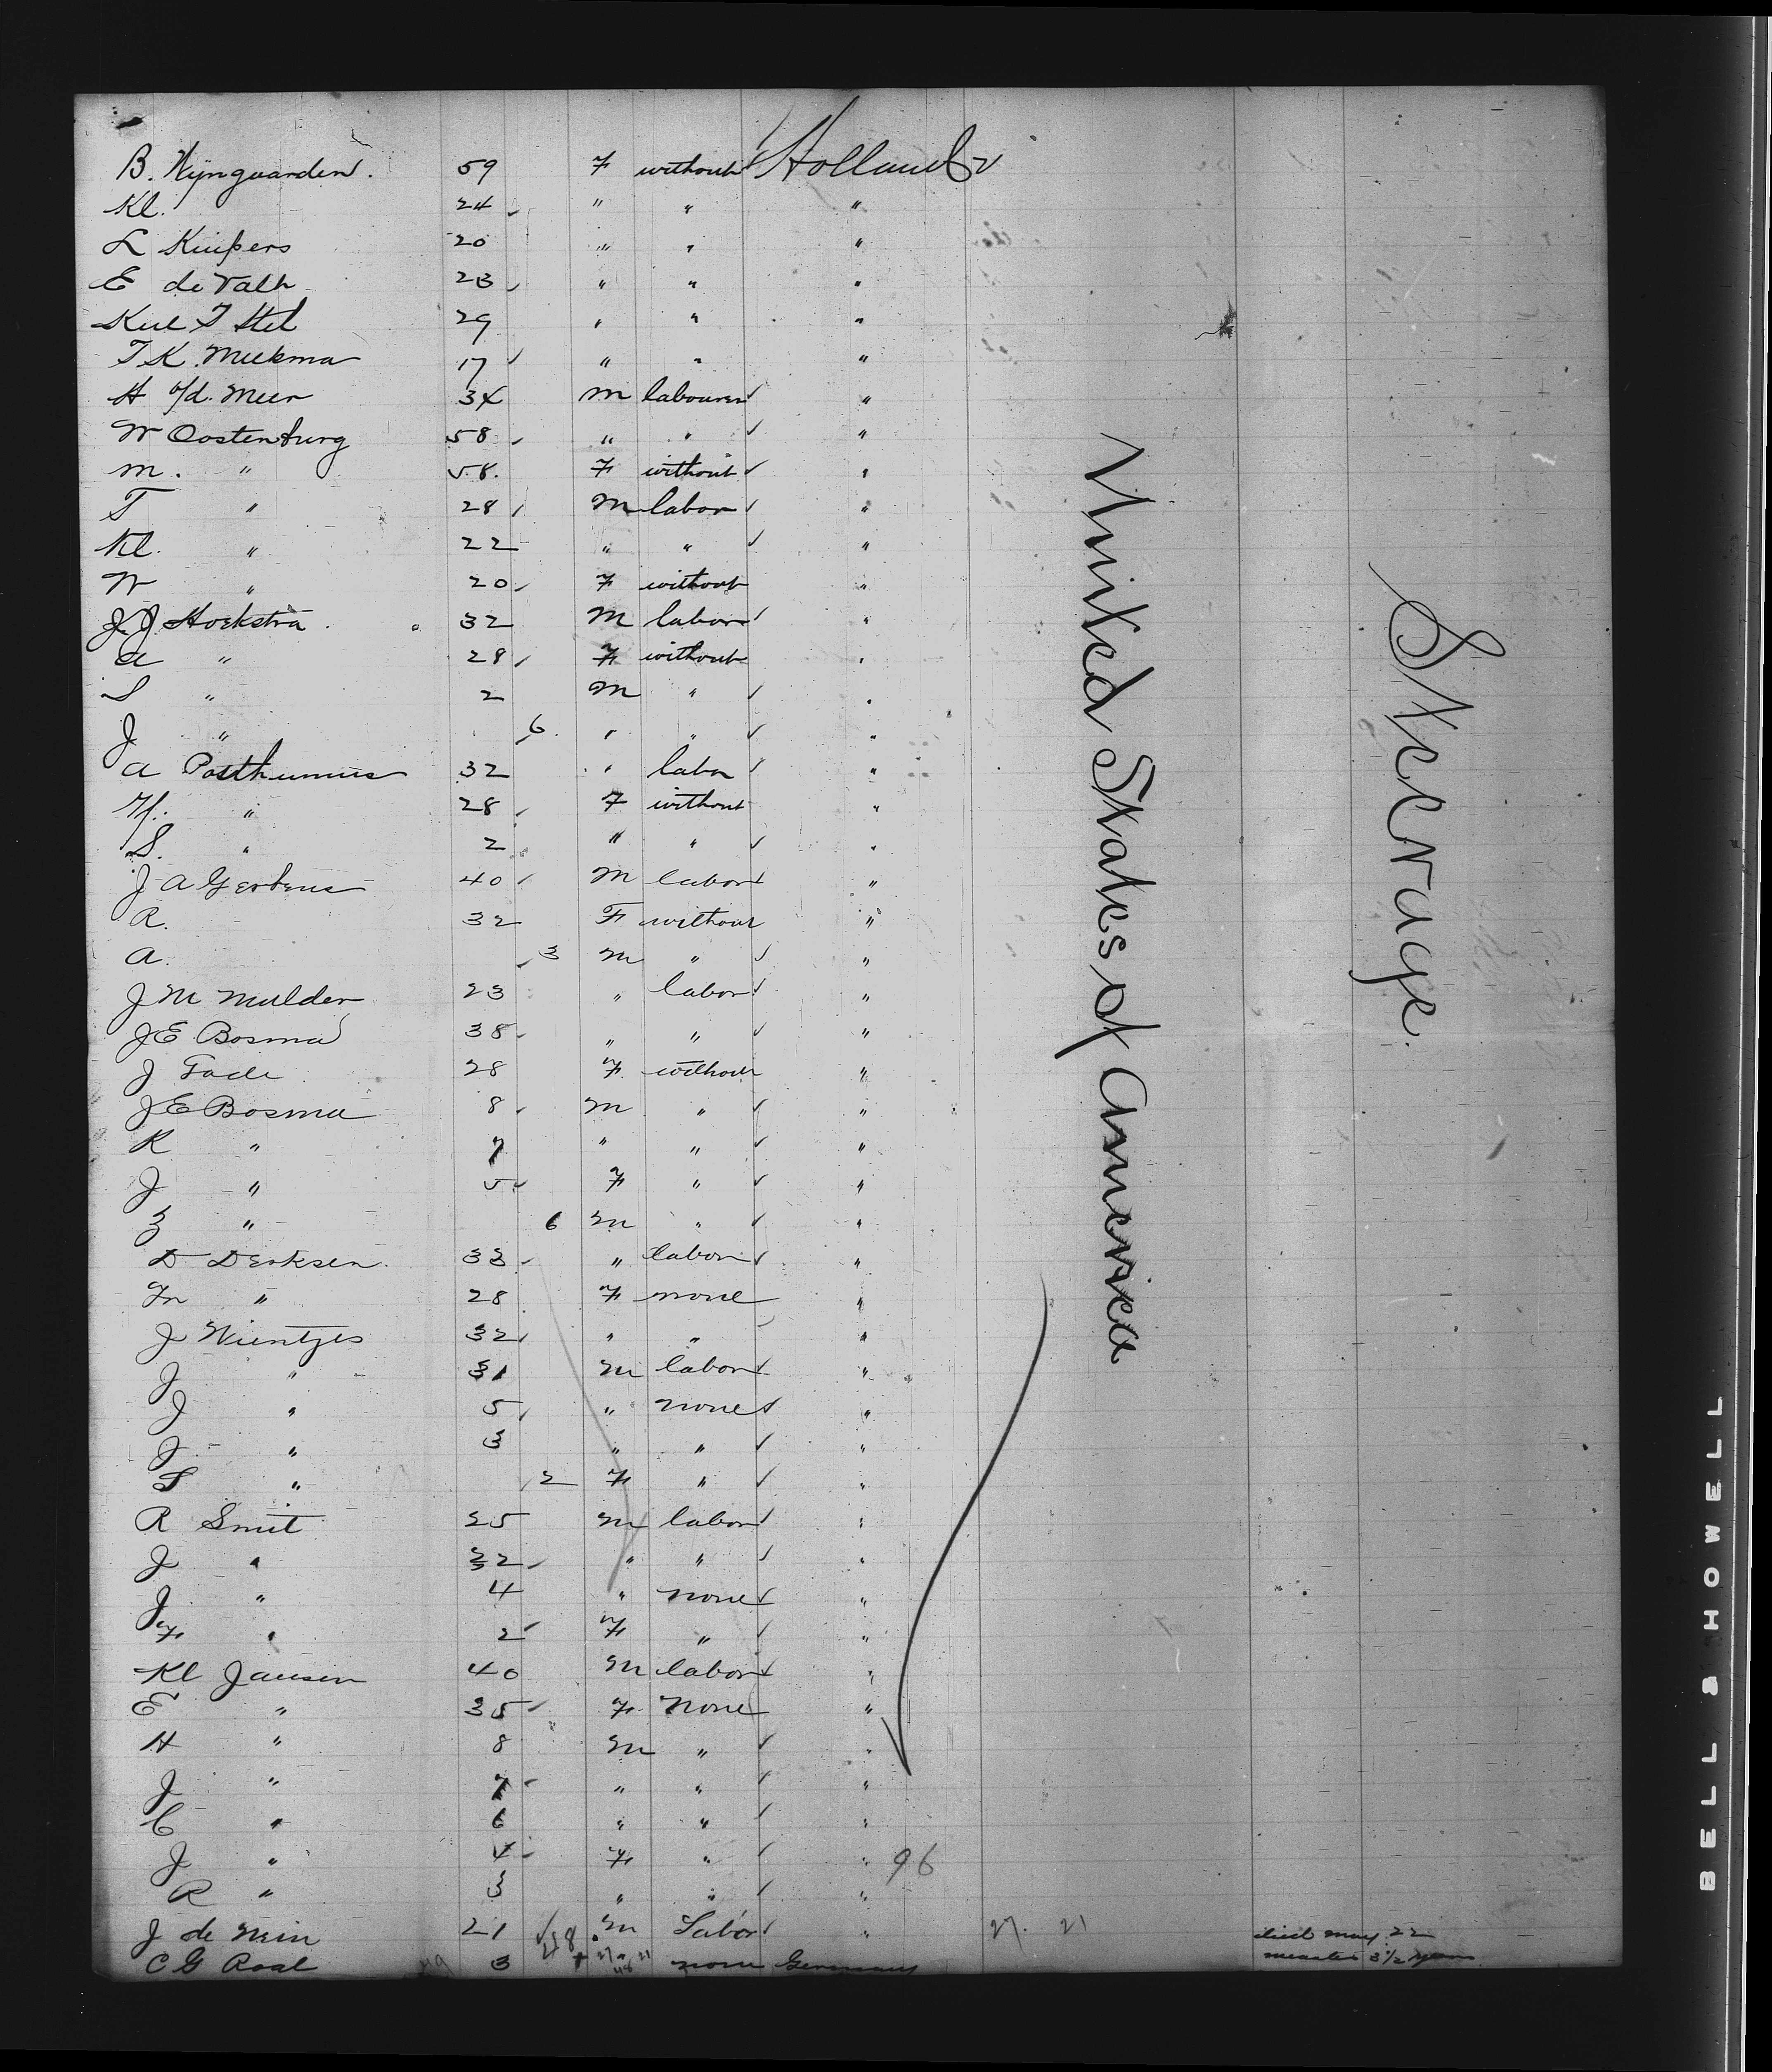 B. Wijngaarden. 59 F without Holland
Kl. 24 " " "
L Kuipers 20 " " "
E de Valk 23 " " "
29 " " "
T K. Miekma 17 " " "
H v/d. Meer 34 M labourer "
W Oostenburg 58 " " "
M. " 58. F without "
T " 28 M labor "
Kl. " 22 " " "
W " 20 F without "
J. J. Hoekstra . 32 M labor "
A " 28 F without "
S " 2 M " "
J " 6 " " "
A Posthumus 32 " labor "
" 28 F without "
S. " 2 " " "
J A Gerbens 40 M labor "
R. 32 F without "
A. 3 M " "
J M Mulder 23 " labor "
J E Bosma 38 " " "
J Fade 28 F without "
J E Bosma 8 M " "
K " 7 " " "
J " 5 F " "
Z " 6 M " "
D Derksen 33 " labor "
Fr " 28 F none "
J Wientjes 32 " " "
J " 31 M labor "
J " 5 " none "
J " 3 " " "
S " 2 F " "
R Smit 25 M labor "
J " 22 " " "
J " 4 " none "
F " 2 F " "
Kl Jansen 40 M labor "
E " 35 F None "
H " 8 M " "
J " 7 " " "
C " 6 " " "
J " 4 F " " 96
R " 3 " " "
J de 21 M Labor " 27. 21 died may 22
C G Raal 3 none Germany measles 3 1/2 years
United States of America
Steerage.
BELL & HOWELL